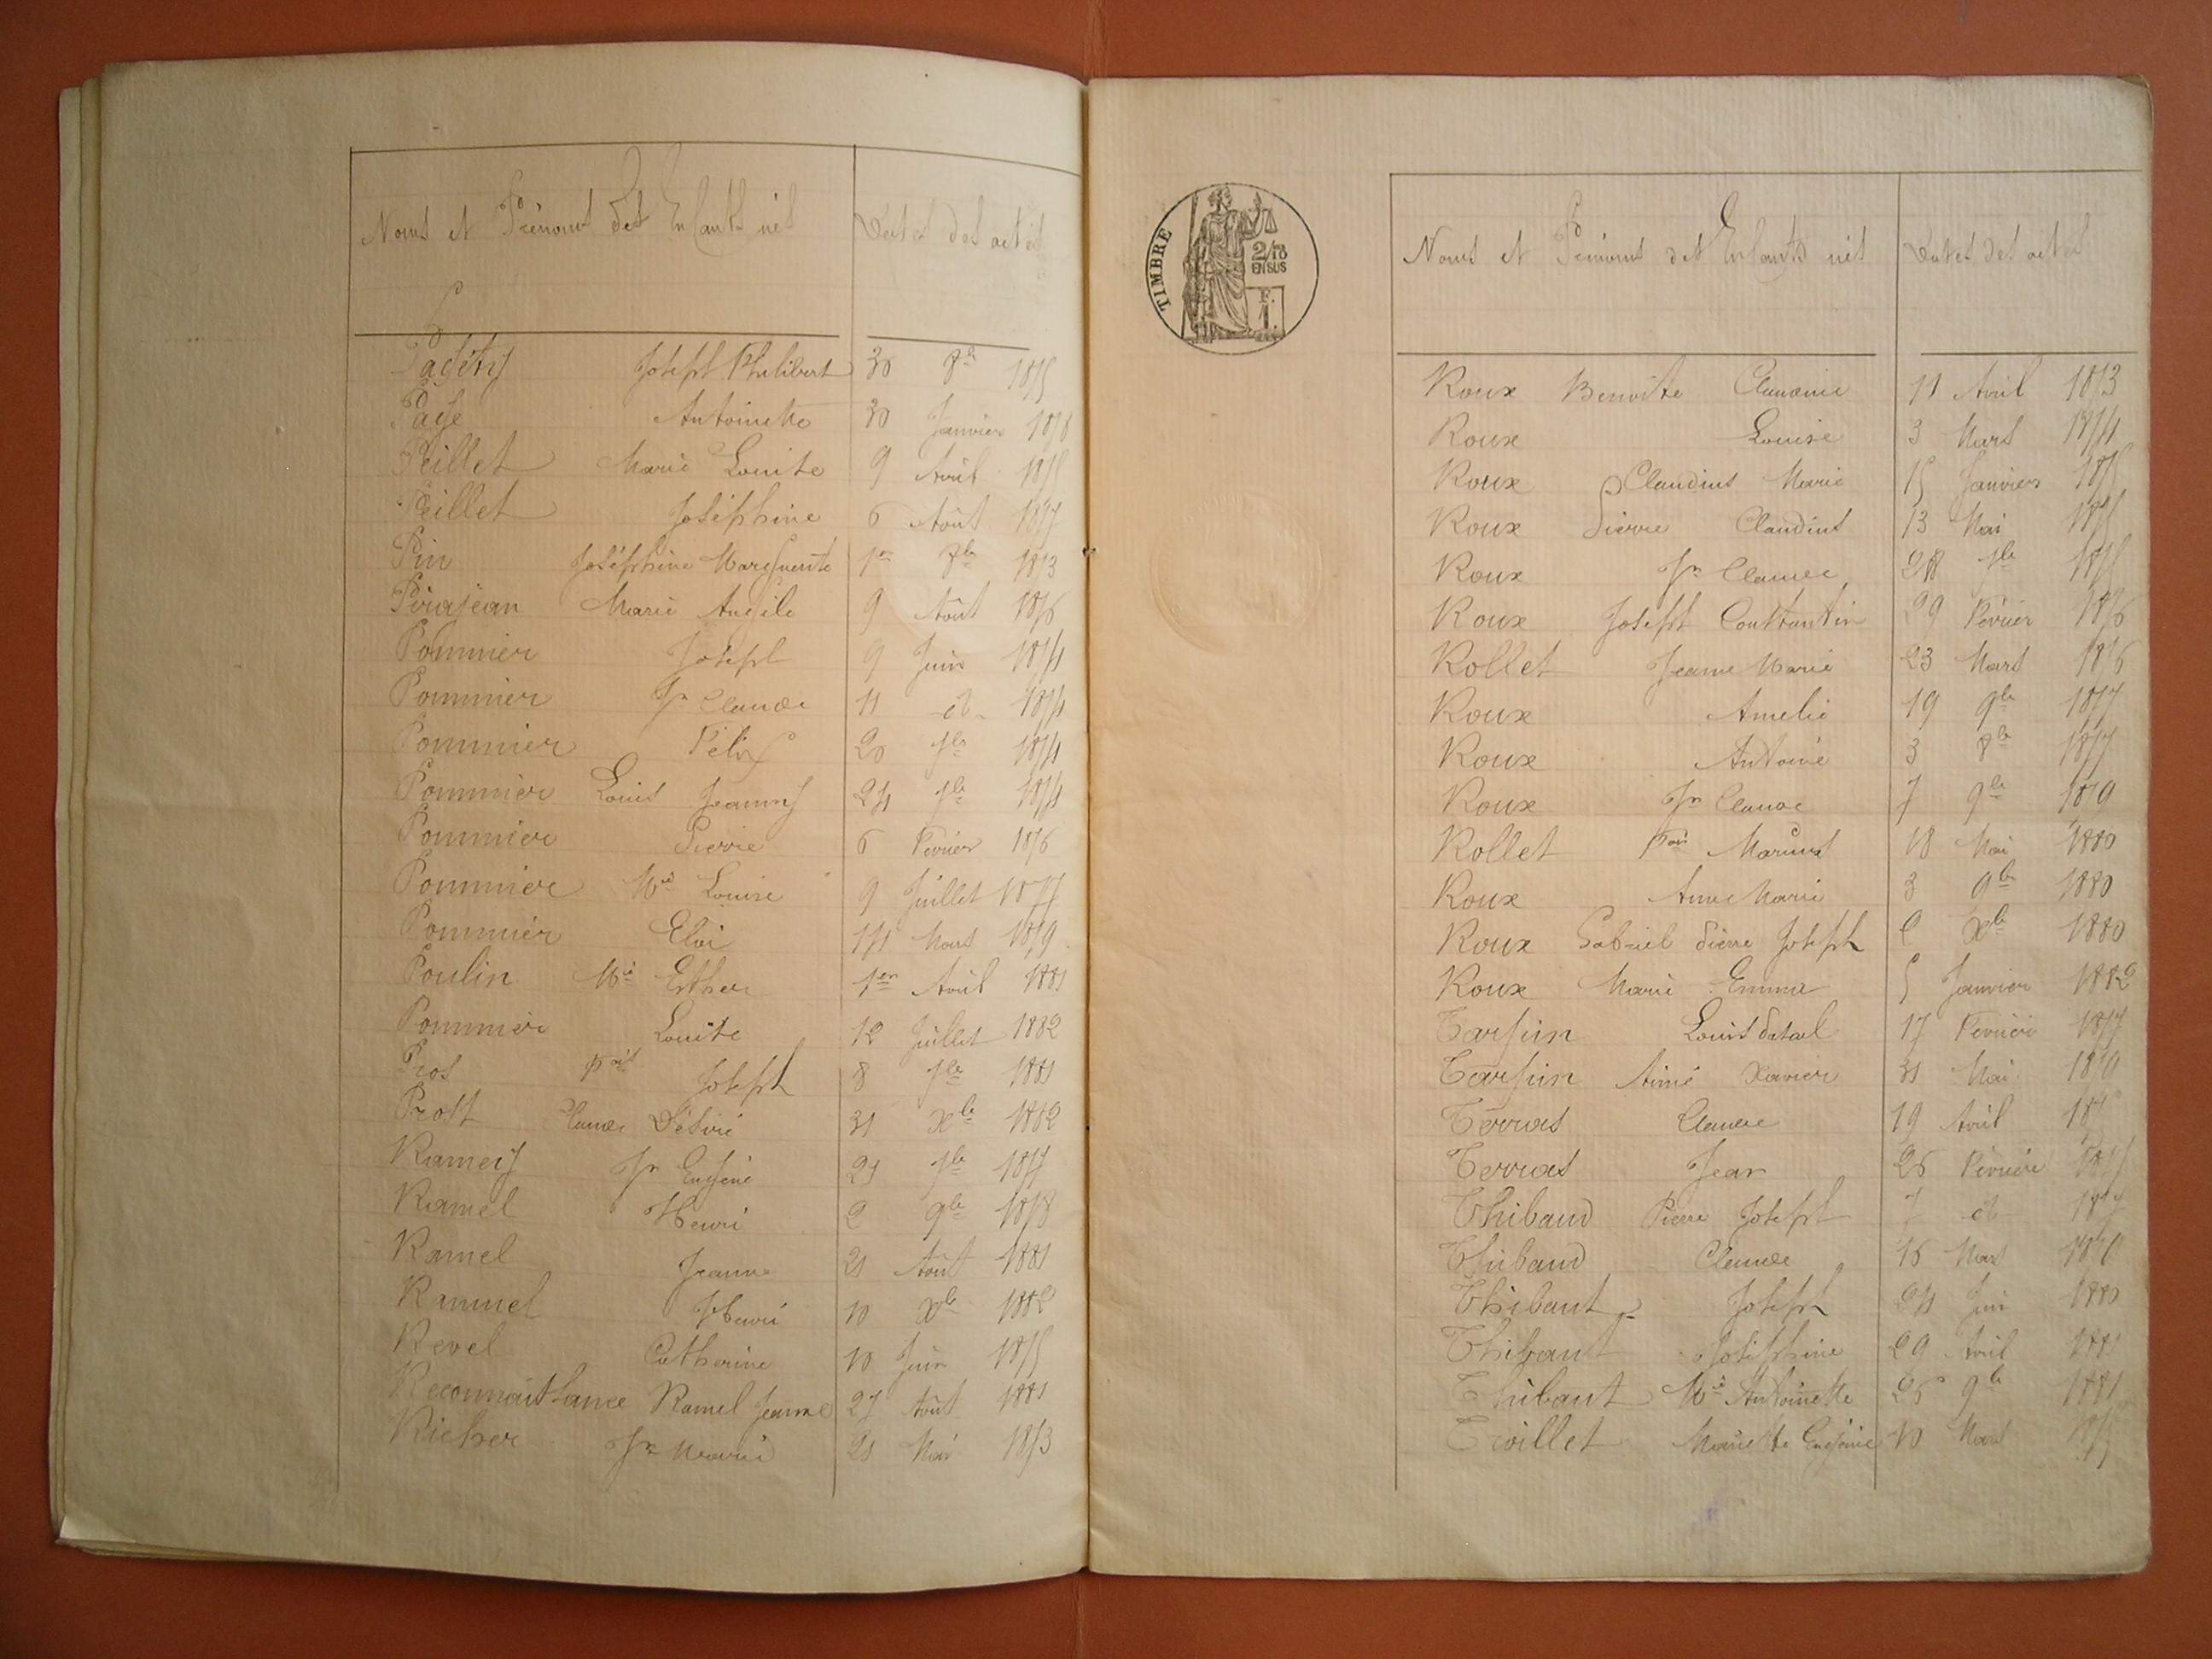 Noms et Prénoms des Enfants nés Dates des actes
Joseph Philibert 30 1875
Page Antoinette 30 Janvier 1878
Peillet Marie Louise 9 Avril 1875
Peillet Joséphine 6 Août 1877
Pin Joséphine Marguerite 1er 7bre 1873
Pirajean Marie Angèle 9 Août 1876
Pommier Joseph 9 Juin 1874
Pommier Jn Claude 11 d- 1874
Pommier Félix 20 7bre 1874
Pommier Louis Jeanny 24 7bre 1874
Pommier Pierre 6 Février 1876
Pommier Mie Louise 9 Juillet 1877
Pommier Eloi 14 Mars 1879
Poulin Mie Esther 1er Avril 1881
Pommier Louise 12 Juillet 1882
Pros Fois Joseph 8 7bre 1881
Prost Claude Désiré 31 Xbre 1882
Ramey Jn Eugène 1877
Ramel Henri 2 9bre 1878
Ramel Jeanne 21 Août 1881
Rammel Henri 10 Xbre 1882
Revel Catherine 10 Juin 1875
Reconnaissance Ramel Jeanne 27 Août 1881
Richer Jn Marie 21 Mai 1873
TIMBRE
2/10
EN SUS
F.
1.
Noms et Prénoms des Enfants nés Dates des actes
Roux Benoite Claudine 11 Avril 1873
Roux Louise 3 Mars 1874
Roux Claudius Marie 15 Janvier 1875
Roux Pierre Claudius 13 Mai 1875
Roux Jn Claude 28 7bre 1875
Roux Joseph Constantin 29 Février 1876
Rollet Jeanne Marie 23 Mars 1876
Roux Amelie 19 9bre 1877
Roux Antoine 3 8bre 1877
Roux Jn Claude 7 9bre 1879
Rollet Fois Marius 18 Mai 1880
Roux Anne Marie 3 9bre 1880
Roux Gabriel Pierre Joseph 2 Xbre 1880
Roux Marie Emma 5 Janvier 1882
Tarpin Louis 17 Février 1877
Tarpin Aimé Xavier 31 Mai
Terras Claude 19 Avril
Terras Jean 26 Février
Thibaud Pierre Joseph 7 d-
Thibaud Claude 16 Mars
Thibaut Joseph 24 Juin 1880
Thibaut Joséphine 29 Avril 1881
Thibaut Mie Antoinette 26 9bre 1881
Troillet Mariette Eugénie 10 Mars